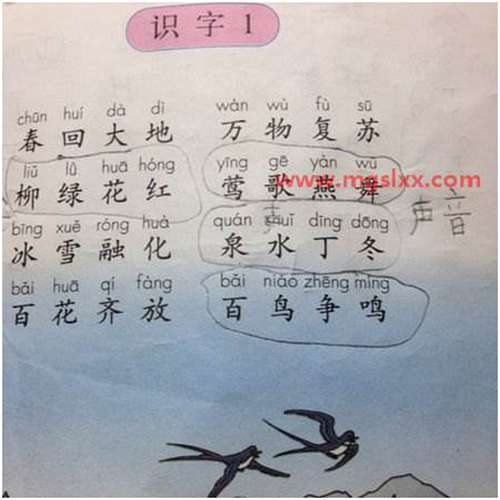 识字1
chūn huí dà dì wàn wù fù sū
春回大地 万物复苏
liǔ lǜ huā hóng yīng gē yàn wǔ
柳绿花红 莺歌燕舞
www.mgslxx.com
bīng xuě róng huà quán shuǐ dīng dōng
冰雪融化 泉水丁冬
声音
bǎi huā qí fàng bǎi niǎo zhēng míng
百花齐放 百鸟争鸣